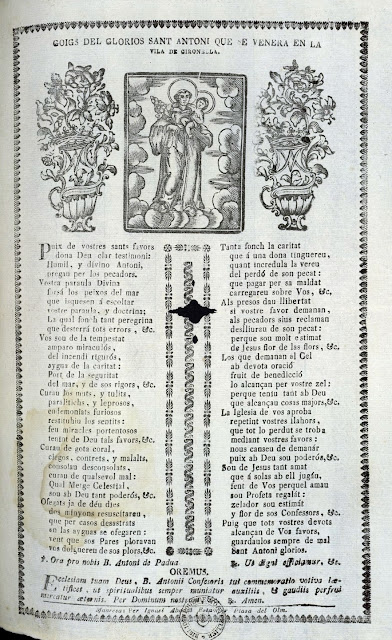 GOIGS DEL GLORIOS SANT ANTONI QUE SE VENERA EN LA
VILA DE GIRONELLA.
Puix de vostres sants favors
dona Deu clar testimoni:
Humil, y divino Antoni,
pregau per los pecadors.
Vostra paraula Divina
forsá los peixos del mar
que isquesen á escoltar
vostre paraula, y doctrina;
La qual fonch tant peregrina
que desterrá tots errors, &c.
Vos sou de la tempestat
amparo miraculós,
del incendi rigurós,
aygua de la caritat:
Port de la seguritat
del mar, y de sos rigors, &c.
Curau los muts, y tulits,
paralitichs, y leprosos,
endemoniats furiosos
restituhiu los sentits:
feu miracles portentosos
tenint de Deu tals favors, &c.
Curau de gota coral,
ciegos, contrets, y malalts,
consolau desconsolats,
curau de qualsevol mal:
Qual Metge Celestial,
sou ab Deu tant poderós, &c.
Ofegats ja de déu dies
dos minyons resuscitareu,
que per casos desastrats
en las ayguas se ofegaren:
vent que sos Pares ploravan
vos dolguereu de sos plors, &c.
Tanta fonch la caritat
que á una dona tinguereu,
quant incredula la vereu
del perdó de son pecat:
que pagar per sa maldat
carregareu sobre Vos, &c.
Als presos dau llibertat
si vostre favor demanan,
als pecadors sius reclaman
deslliurau de son pecat:
perque sou molt estimat
de Jesus flor de las flors, &c.
Los que demanan al Cel
ab devota oració
fruit de benedicció
lo alcançan per vostre zel:
perque teniu tant ab Deu
que alcançau cosas majors, &c.
La Iglesia de vos aproba
repetint vostres llahors,
que tot lo perdut se troba
mediant vostres favors:
nous canseu de demanár
puix ab Deu sou poderós, &c.
Sou de Jesus tant amat
que á solas ab ell jugau,
fent de Vos perquel amau
sou Profeta regalát:
zelador sou estimát
y flor de sos Confessors, &c.
Puig que tots vostres devots
alcançan de Vos favors,
guardaulos sempre de mal
Sant Antoni glorios.
℣. Ora pro nobis B. Antoni de Padua
℟. Ut digni efficiamur, &c.
OREMUS.
Ecclesiam tuam Deus, B. Antonii Confesoris tui commemoratio votiva læ-
tificet, ut spiritualibus semper muniatur auxiliis, & gaudiis perfrui
mereatur æternis. Per Dominum nostrum, &c. ℟. Amen.
Manresa: Per Ignaci Abadal Estamper Plasa del Olm.